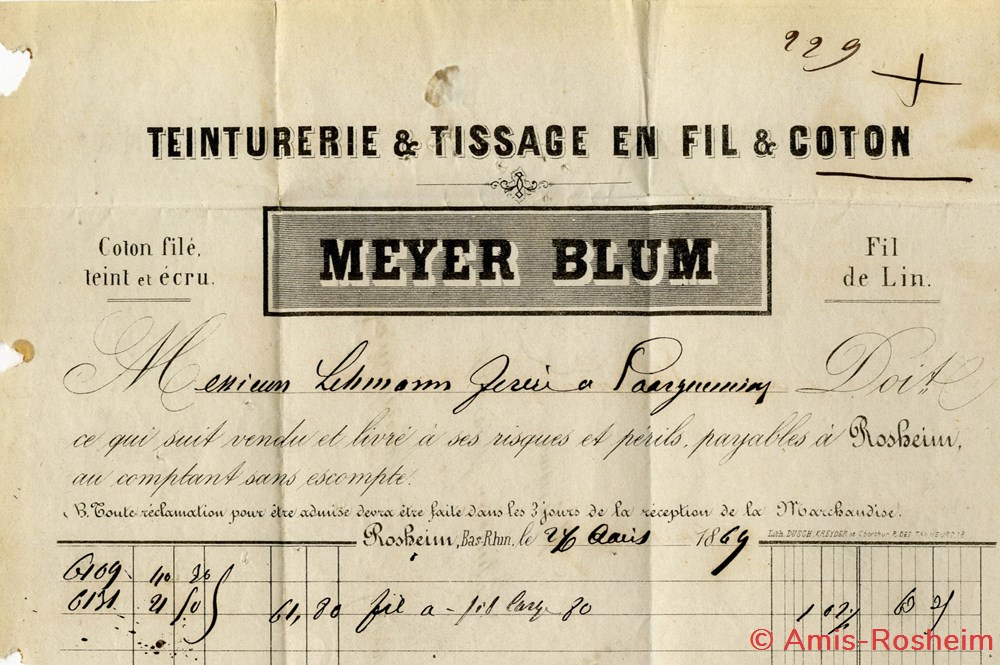 229
TEINTURERIE & TISSAGE EN FIL & COTON
Coton filé,
teint et écru.
MEYER BLUM
Fil
de Lin.
Messieurs Lehmann à Doit
ce qui suit vendu et livré à ses risques et périls, payables à Rosheim,
au comptant sans escompte.
NB. Toute réclamation pour être admise devra être faite dans les 3 jours de la réception de la Marchandise.
Rosheim, Bas-Rhin, le 1869
Lith. DUSCH, KREYDER
6109 40
6131 21
61,80 fil a 80
© Amis-Rosheim